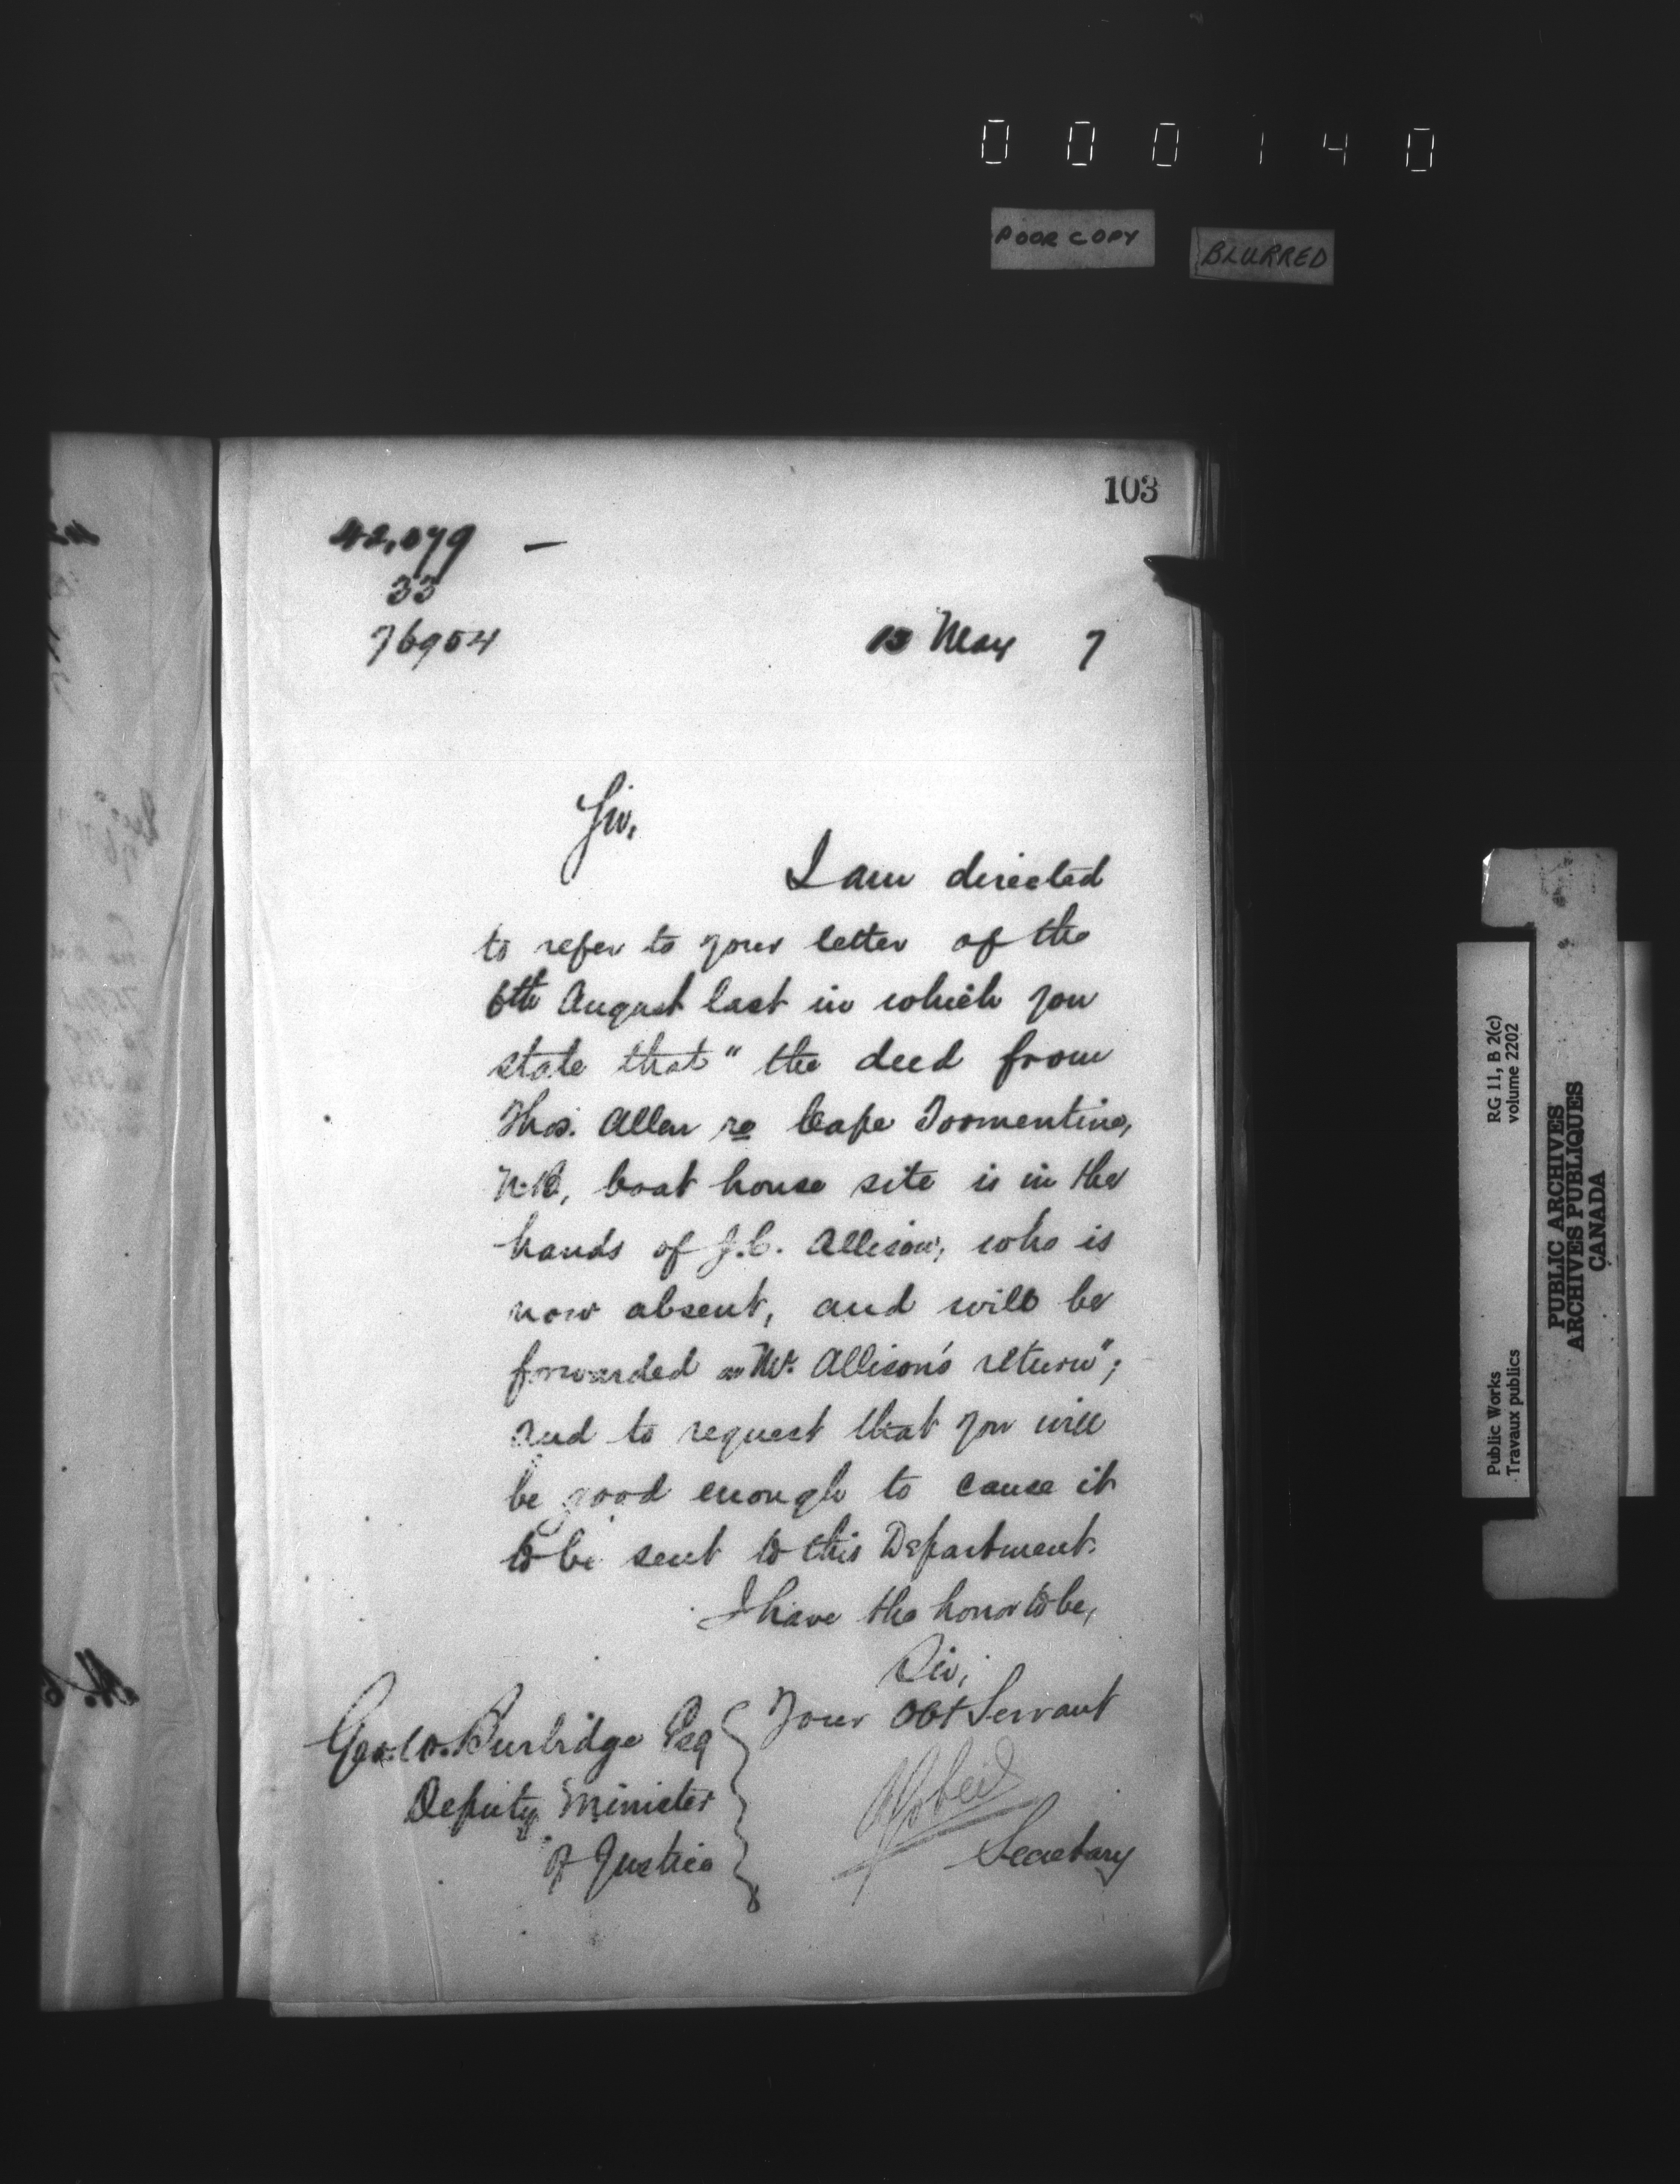 000140
POOR COPY
BLURRED
103
42,079 —
33
76904
13 May 7
Sir,
I am directed
to refer to your letter of the
6th August last in which you
state that "the deed from
Thos. Allen re Cape Tormentine,
N.B, boat house site is in the
hands of J.C. Allison, who is
now absent, and will be
forwarded on Mr. Allison's return";
and to request that you will
be good enough to cause it
to be sent to this Department.
I have the honor to be,
Sir,
Your Obt Servant
Geo. W. Burbidge Esq
Deputy Minister
of Justice
Secretary
Public Works
Travaux publics
RG 11, B 2(c)
volume 2202
PUBLIC ARCHIVES
ARCHIVES PUBLIQUES
CANADA